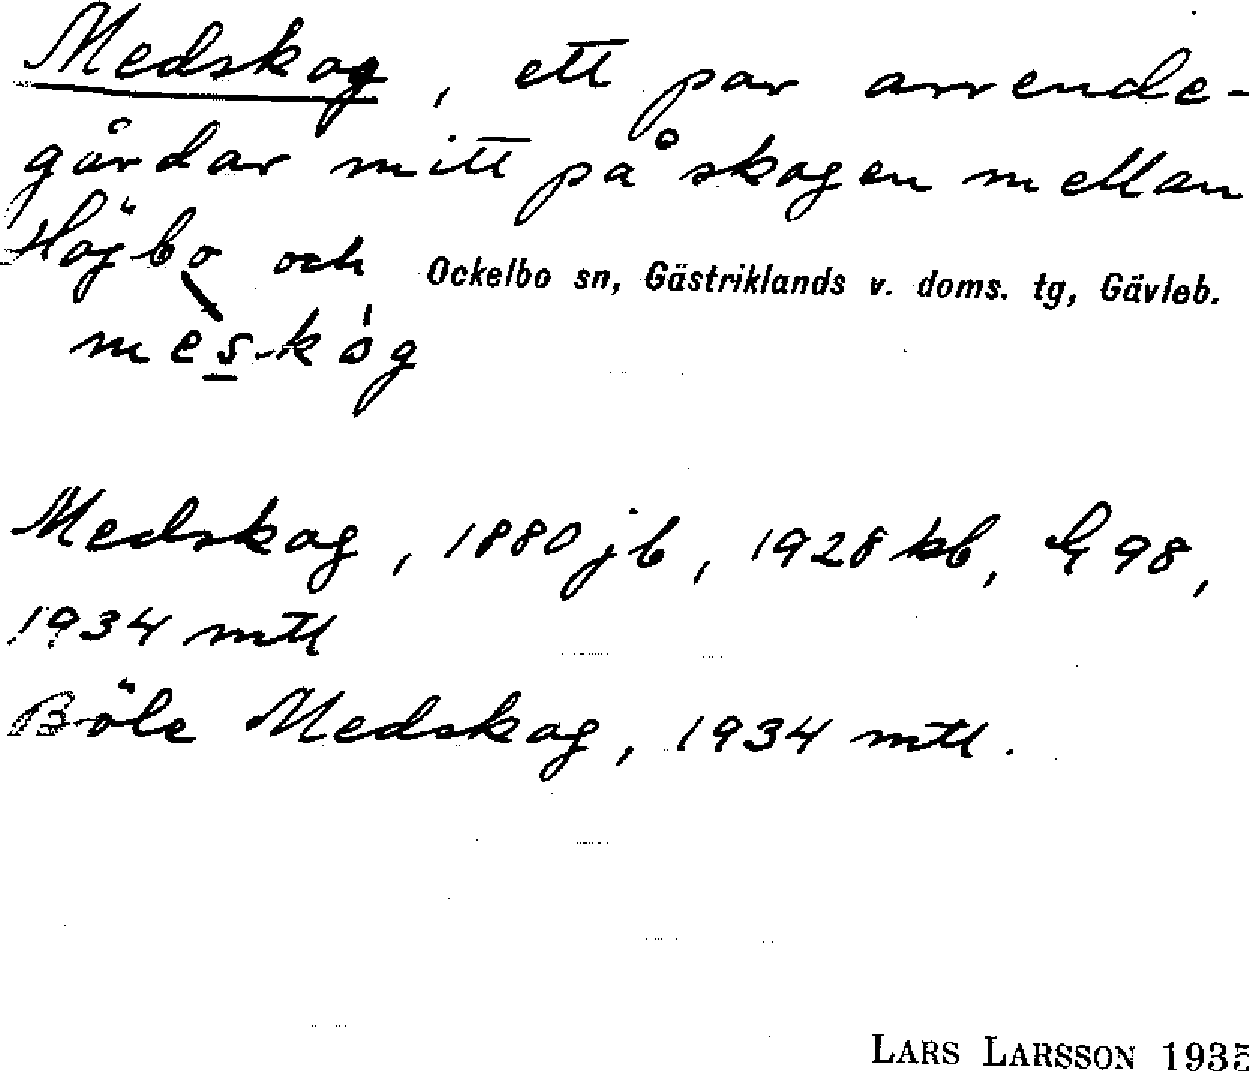 Medskog, ett par arrende-
gårdar mitt på skogen mellan
Högbo och Ockelbo sn, Gästriklands v. doms. tg, Gävleb.
mes-kóg
Medskog, 1880 jb, 1928 kb, G 98,
1934 mtl
Böle Medskog, 1934 mtl.
LARS LARSSON 1935